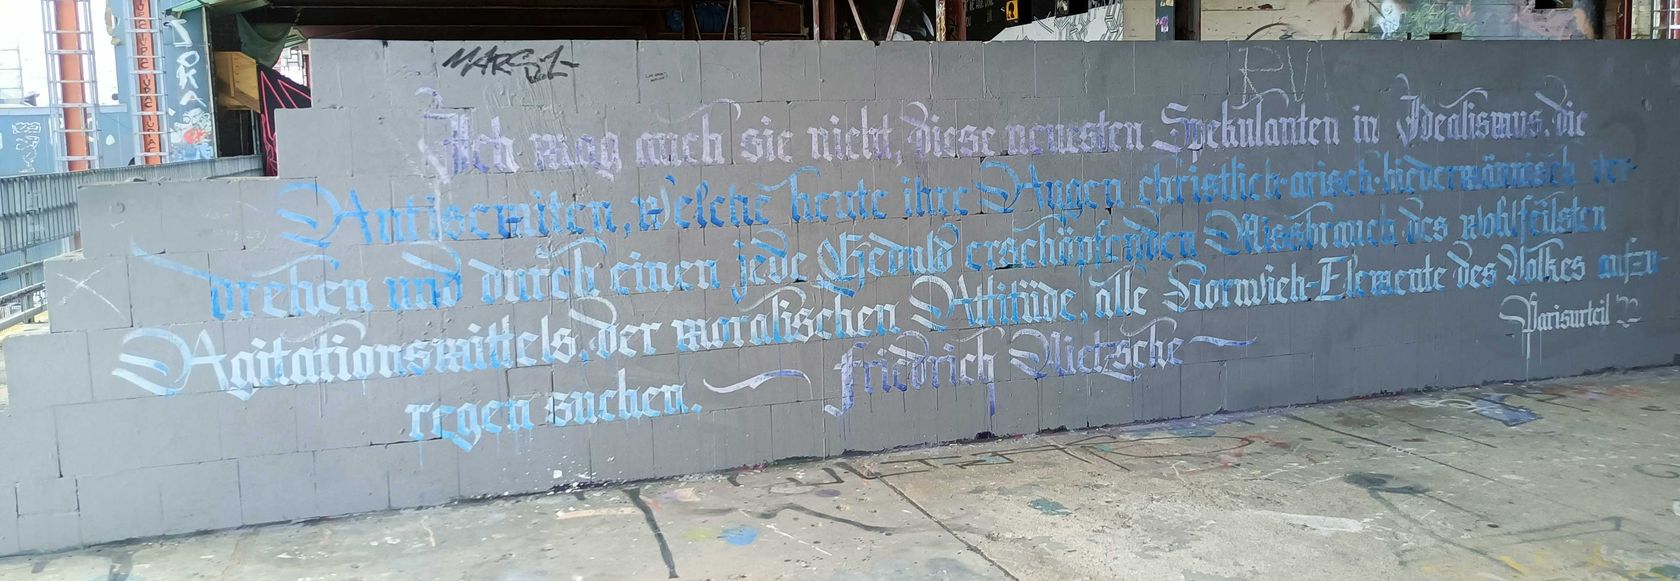 MARS1
Ich mag auch sie nicht, diese neuesten Spekulanten in Idealismus, die
Antisemiten, welche heute ihre Augen christlich-arisch-biedermännisch ver-
drehen und durch einen jede Geduld erschöpfenden Missbrauch des wohlfeilsten
Agitationsmittels, der moralischen Attitüde, alle Hornvieh-Elemente des Volkes aufzu-
regen suchen.
Friedrich Nietzsche
Parisurteil